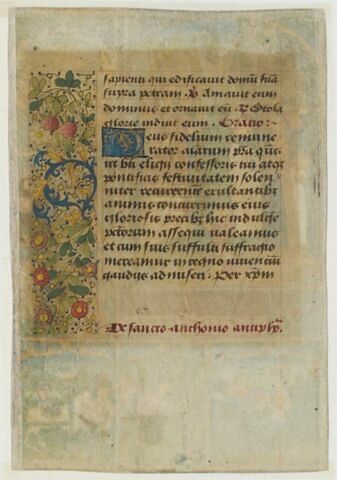 sapienti qui edificavit domū suā
supra petram ℣ Amavit eum
dominus et ornavit eū ℟ Stola
glorie induit eum Oratio
Deus fidelium remune
rator aīarum
ut bti eligii confessoris tui atqȝ
pontificis festivitatem solen
niter
animis concurrimus eius
gloriosis precibȝ hic indulge
assequi valeamus
et cum suis suffulti suffragio
mereamur in regno viventiū
gaudiis admisceri Per xpm
De sancto anthonio antiph